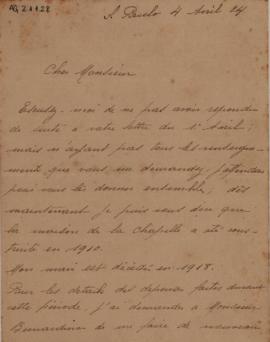 S. Paulo 4 Avril 24
Cher Monsieur
Excusez-moi de ne pas avoir répondu
de suite à votre lettre du 1er Avril;
mais n'ayant pas tous les renseigne-
ments que vous me demandez, j'attendais
pour vous les donner ensemble; dès
maintenant je puis vous dire que
la maison de la Chapelle a été cons-
truite en 1910.
Mon mari est décédé en 1918.
Pour les détails des dépenses faites durant
cette période, j'ai demandé à Monsieur
Bernardino de me faire